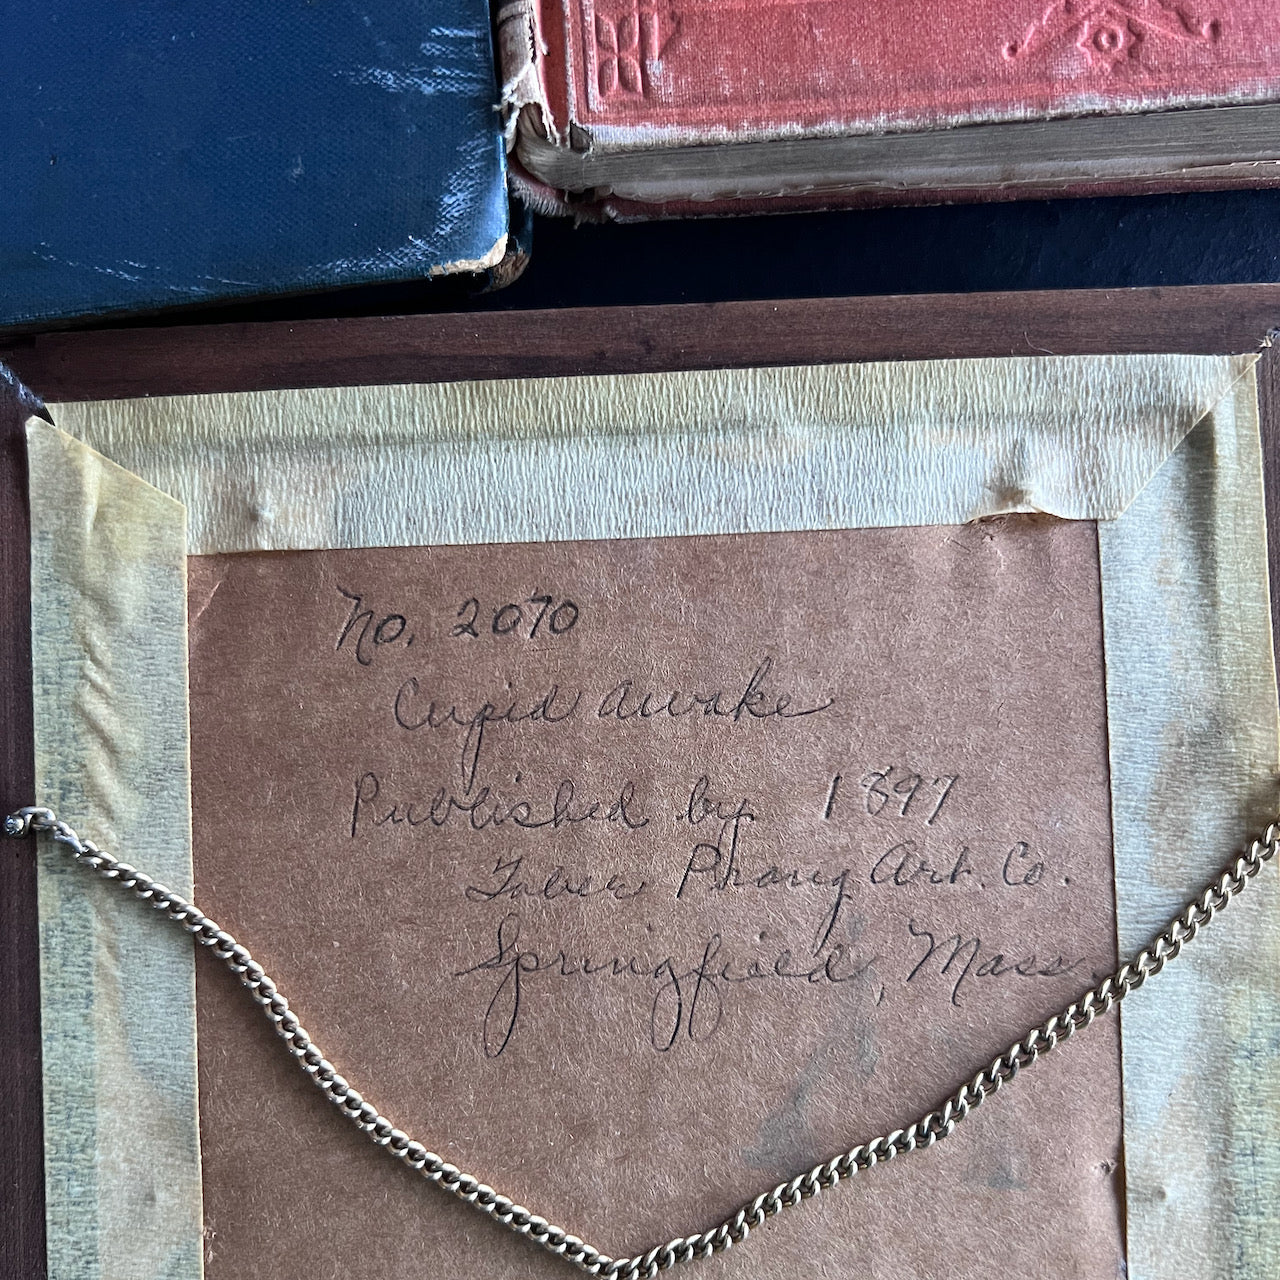 No. 2070
Cupid awake
Published by 1897
Taber Prang Art. Co.
Springfield, Mass.